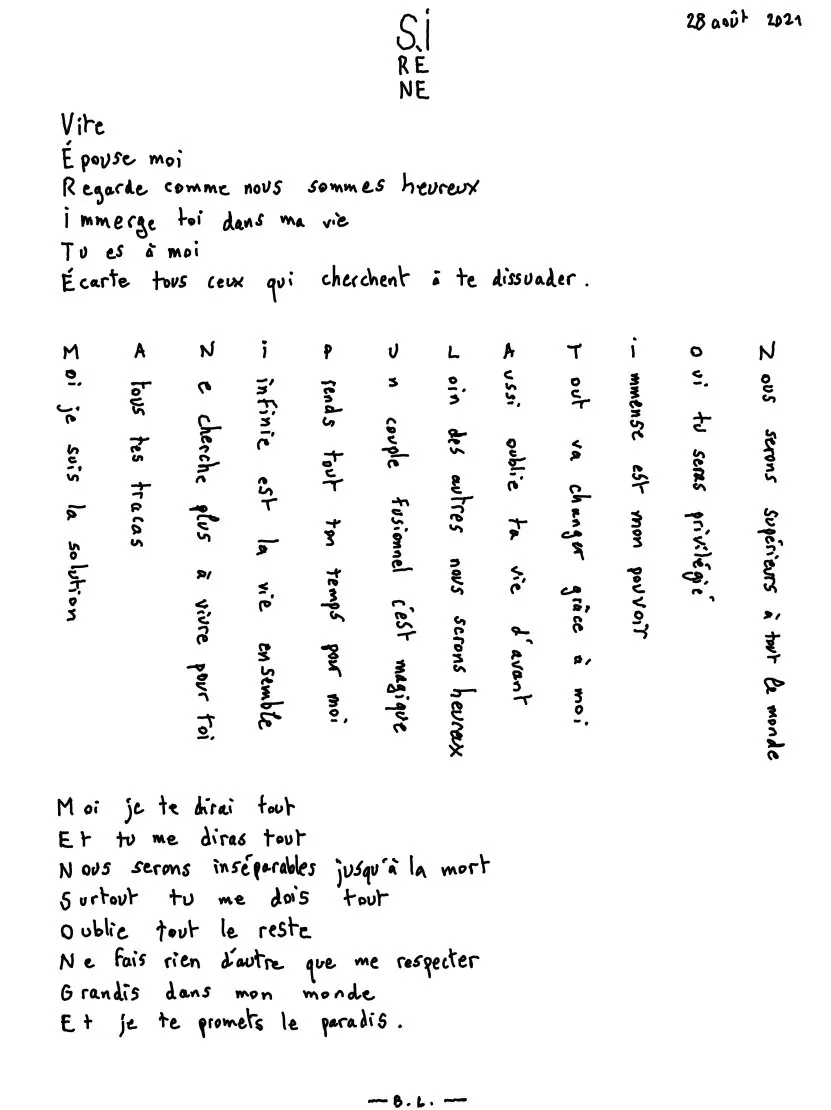 Si
RÈ
NE
28 août 2021
Vite
Épouse moi
Regarde comme nous sommes heureux
immerge toi dans ma vie
Tu es à moi
Écarte tous ceux qui cherchent à te dissuader.
Moi je suis la solution
A tous tes tracas
Ne cherche plus à vivre pour toi
i infinie est la vie ensemble
Prends tout ton temps pour moi
Un couple fusionnel c'est magique
Loin des autres nous serons heureux
Aussi oublie ta vie d'avant
Tout va changer grâce à moi
immense est mon pouvoir
Oui tu seras privilégié
Nous serons supérieurs à tout le monde
Moi je te dirai tout
Et tu me diras tout
Nous serons inséparables jusqu'à la mort
Surtout tu me dois tout
Oublie tout le reste
Ne fais rien d'autre que me respecter
Grandis dans mon monde
Et je te promets le paradis.
— B.L. —